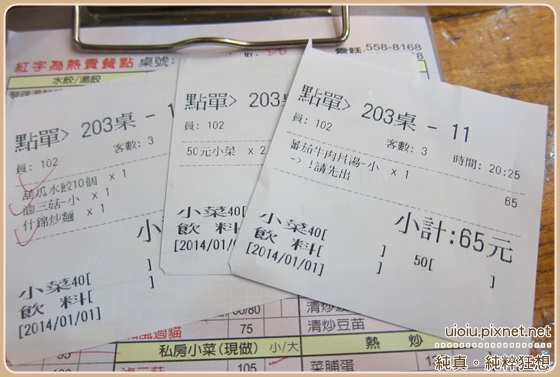 558-8168
紅字為熱賣餐點 桌號:
水餃/湯餃
點單> 203桌 - 1
員: 102
客數: 3
胡瓜水餃10個 x 1
滷三菇-小 x 1
什錦炒麵 x 1
小
小菜40[ ]
飲 料[ ]
[2014/01/01]
點單> 203桌
員: 102
50元小菜 x 2
小菜40[
飲 料[
[2014/01/01]
點單> 203桌 - 11
員: 102
客數: 3
時間: 20:25
蕃茄牛肉貝湯-小 x 1
65
-> !請先出
小計:65元
小菜40[ ] 50[ ]
飲 料[ ]
[2014/01/01]
75
清炒豆苗
私房小菜(現做)
小/大
熱 炒
105
菜脯蛋
uioiu.pixnet.net
純真。純粹狂想